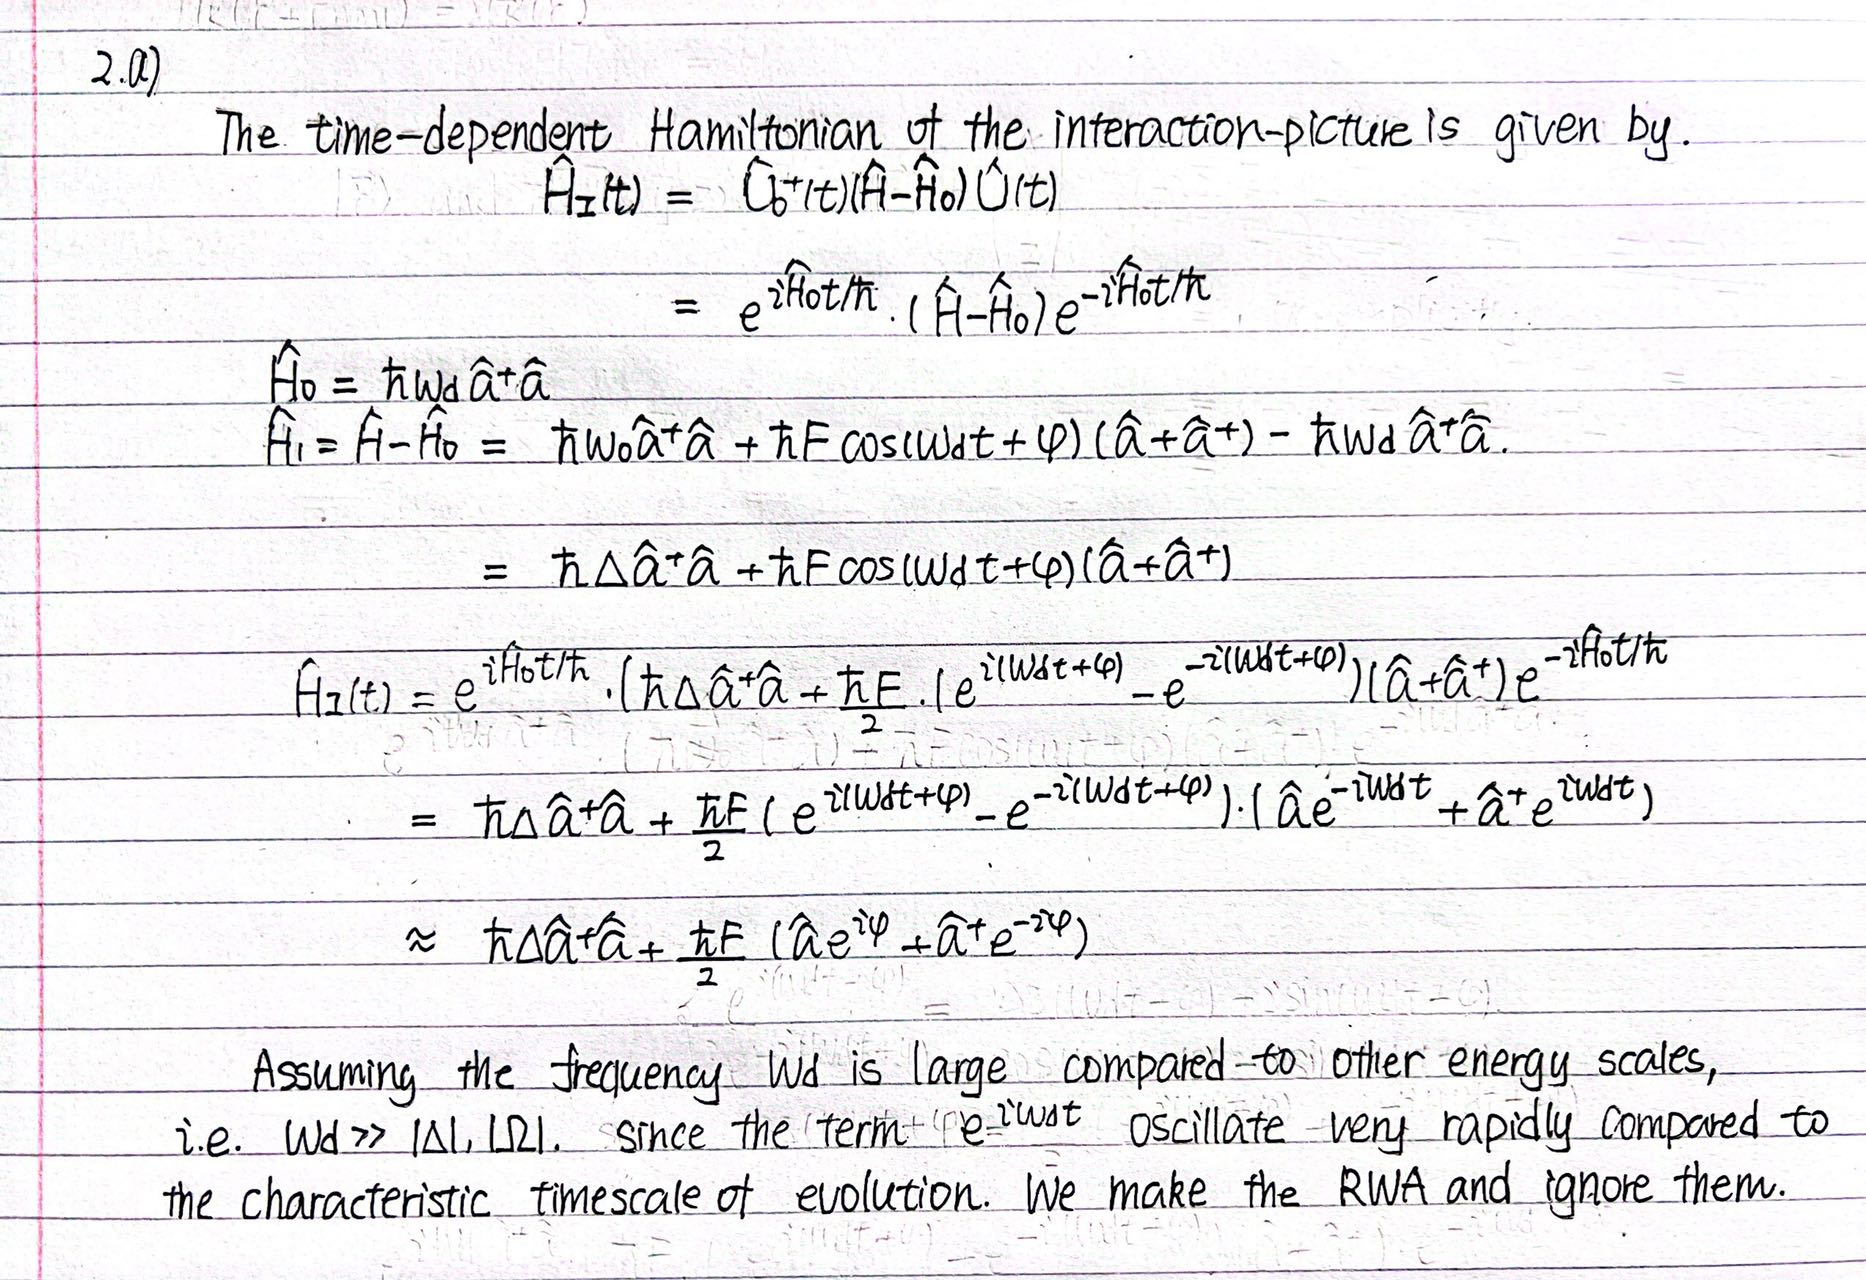 2.a)
The time-dependent Hamiltonian of the interaction-picture is given by.
Ĥ_I(t) = Û₀⁺(t)(Ĥ-Ĥ₀)Û(t)
= e^{iĤ₀t/ħ}·(Ĥ-Ĥ₀)e^{-iĤ₀t/ħ}
Ĥ₀ = ħω_d â⁺â
Ĥ₁ = Ĥ-Ĥ₀ = ħω₀â⁺â + ħF cos(ω_d t+φ)(â+â⁺) - ħω_d â⁺â.
= ħΔâ⁺â + ħF cos(ω_d t+φ)(â+â⁺)
Ĥ_I(t) = e^{iĤ₀t/ħ}·(ħΔâ⁺â + ħF/2·(e^{i(ω_d t+φ)} - e^{-i(ω_d t+φ)})(â+â⁺)e^{-iĤ₀t/ħ}
= ħΔâ⁺â + ħF/2 (e^{i(ω_d t+φ)} - e^{-i(ω_d t+φ)})·(âe^{-iω_d t} + â⁺e^{iω_d t})
≈ ħΔâ⁺â + ħF/2 (âe^{iφ} + â⁺e^{-iφ})
Assuming the frequency ω_d is large compared to other energy scales,
i.e. ω_d >> |Δ|, |Ω|. since the term e^{-iω_d t} oscillate very rapidly compared to
the characteristic timescale of evolution. We make the RWA and ignore them.